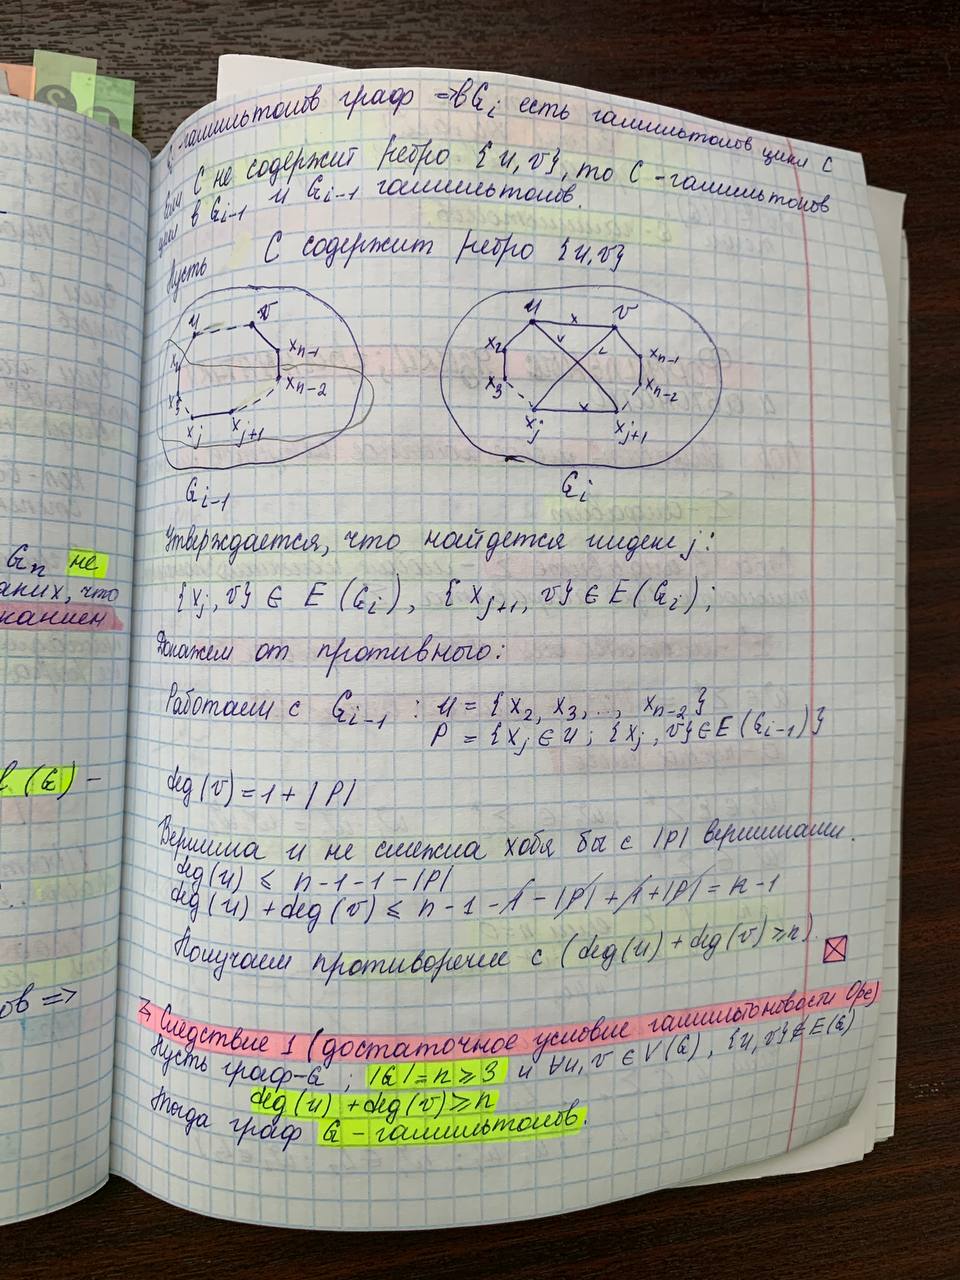 гамильтонов граф ⇒ в Gi есть гамильтонов цикл C
Если C не содержит ребро {u, v}, то C - гамильтонов
цикл в Gi-1 и Gi-1 гамильтонов.
Пусть C содержит ребро {u, v}
u v
x2 xn-1
x3 xn-2
xj xj+1
Gi-1
u x v
x2 v xn-1
x3 xn-2
x
xj xj+1
Gi
Утверждается, что найдется индекс j:
{xj, v} ∈ E(Gi), {xj+1, v} ∈ E(Gi);
Докажем от противного:
Работаем с Gi-1 : U = {x2, x3, ..., xn-2}
P = {xj ∈ U ; {xj, v} ∈ E(Gi-1)}
deg(v) = 1 + |P|
Вершина u не смежна хобя бы с |P| вершинами.
deg(u) ≤ n-1-1-|P|
deg(u) + deg(v) ≤ n-1-1-|P|+1+|P| = n-1
Получаем противоречие с (deg(u) + deg(v) ≥ n).
Следствие 1 (достаточное условие гамильтоновости Оре)
Пусть граф-G ; |G| = n ≥ 3 и ∀u, v ∈ V(G), {u, v} ∉ E(G)
deg(u) + deg(v) ≥ n
Тогда граф G - гамильтонов.
Gn не
аких, что
(G) -
ов =>